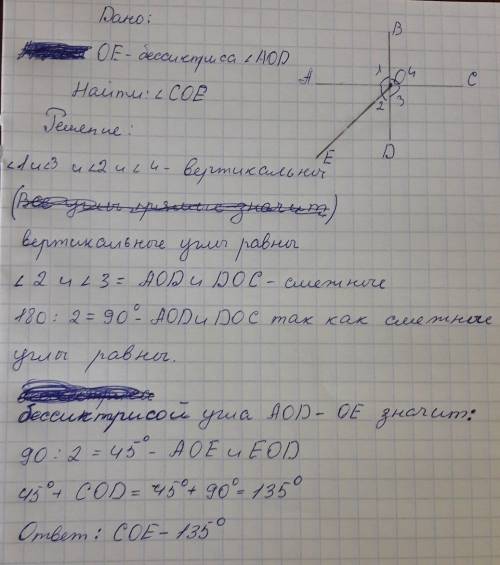 Дано:
OE - бессиктриса ∠AOD
Найти: ∠COE
Решение:
B
A
1
O
4
C
2
3
E
D
∠1 и ∠3 и ∠2 и ∠4 - вертикальны
(Все углы прямые значит)
вертикальные углы равны
∠2 и ∠3 = AOD и DOC - смежные
180 : 2 = 90° - AOD и DOC так как смежные
углы равны.
бессиктрисой угла AOD - OE значит:
90 : 2 = 45° - AOE и EOD
45° + COD = 45° + 90° = 135°
Ответ: COE - 135°